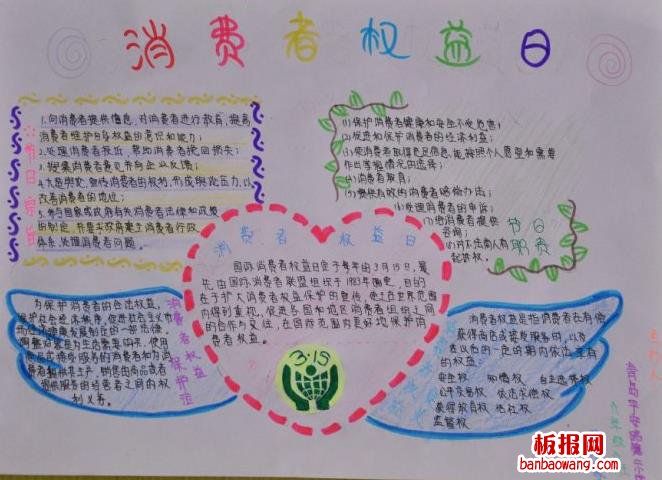 消费者权益日
节日宗旨
1.向消费者提供信息,对消费者进行教育,提高
消费者维护自身权益的意识和能力;
2.处理消费者投诉,帮助消费者挽回损失;
3.搜集消费者意见并向企业反馈;
4.大造舆论,宣传消费者的权利,形成舆论压力,以
改善消费者的地位;
5.参与国家或政府有关消费者法律和政策
的制定,并要求政府建立消费者行政
体系,处理消费者问题。
(1)保护消费者健康和安全不受危害;
(2)促进和保护消费者的经济利益;
(3)使消费者取得充足信息,能按照个人愿望和需要
作出掌握情况的选择;
(4)消费者教育;
(5)提供有效的消费者赔偿办法;
(6)受理消费者的申诉;
(7)给消费者提供
咨询;
(8)对不法商人有
起诉权。
节日
职责
消费者权益日
国际消费者权益日定于每年的3月15日,最
先由国际消费者联盟组织于1983年确定,目的
在于扩大消费者权益保护的宣传,使之在世界范围
内得到重视,促进各国和地区消费者组织之间
的合作与交往,在国际范围内更好地保护消
费者权益。
3·15
消费者权益
保护法
为保护消费者的合法权益,
维护社会经济秩序,促进社会主义市
场经济健康发展制定的一部法律。
调整对象是为生活需要购买、使用
商品或接受服务的消费者和为消
费者提供其生产、销售的商品或者
提供服务的经营者之间的权
利义务。
消费者权益是指消费者在有偿
获得商品或接受服务时,以及
在以后的一定时期内依法享有
的权益。
安全权 知情权 自主选择权
公平交易权 依法求偿权
获得教育权 结社权
监督权
板报网
banbaowang.com